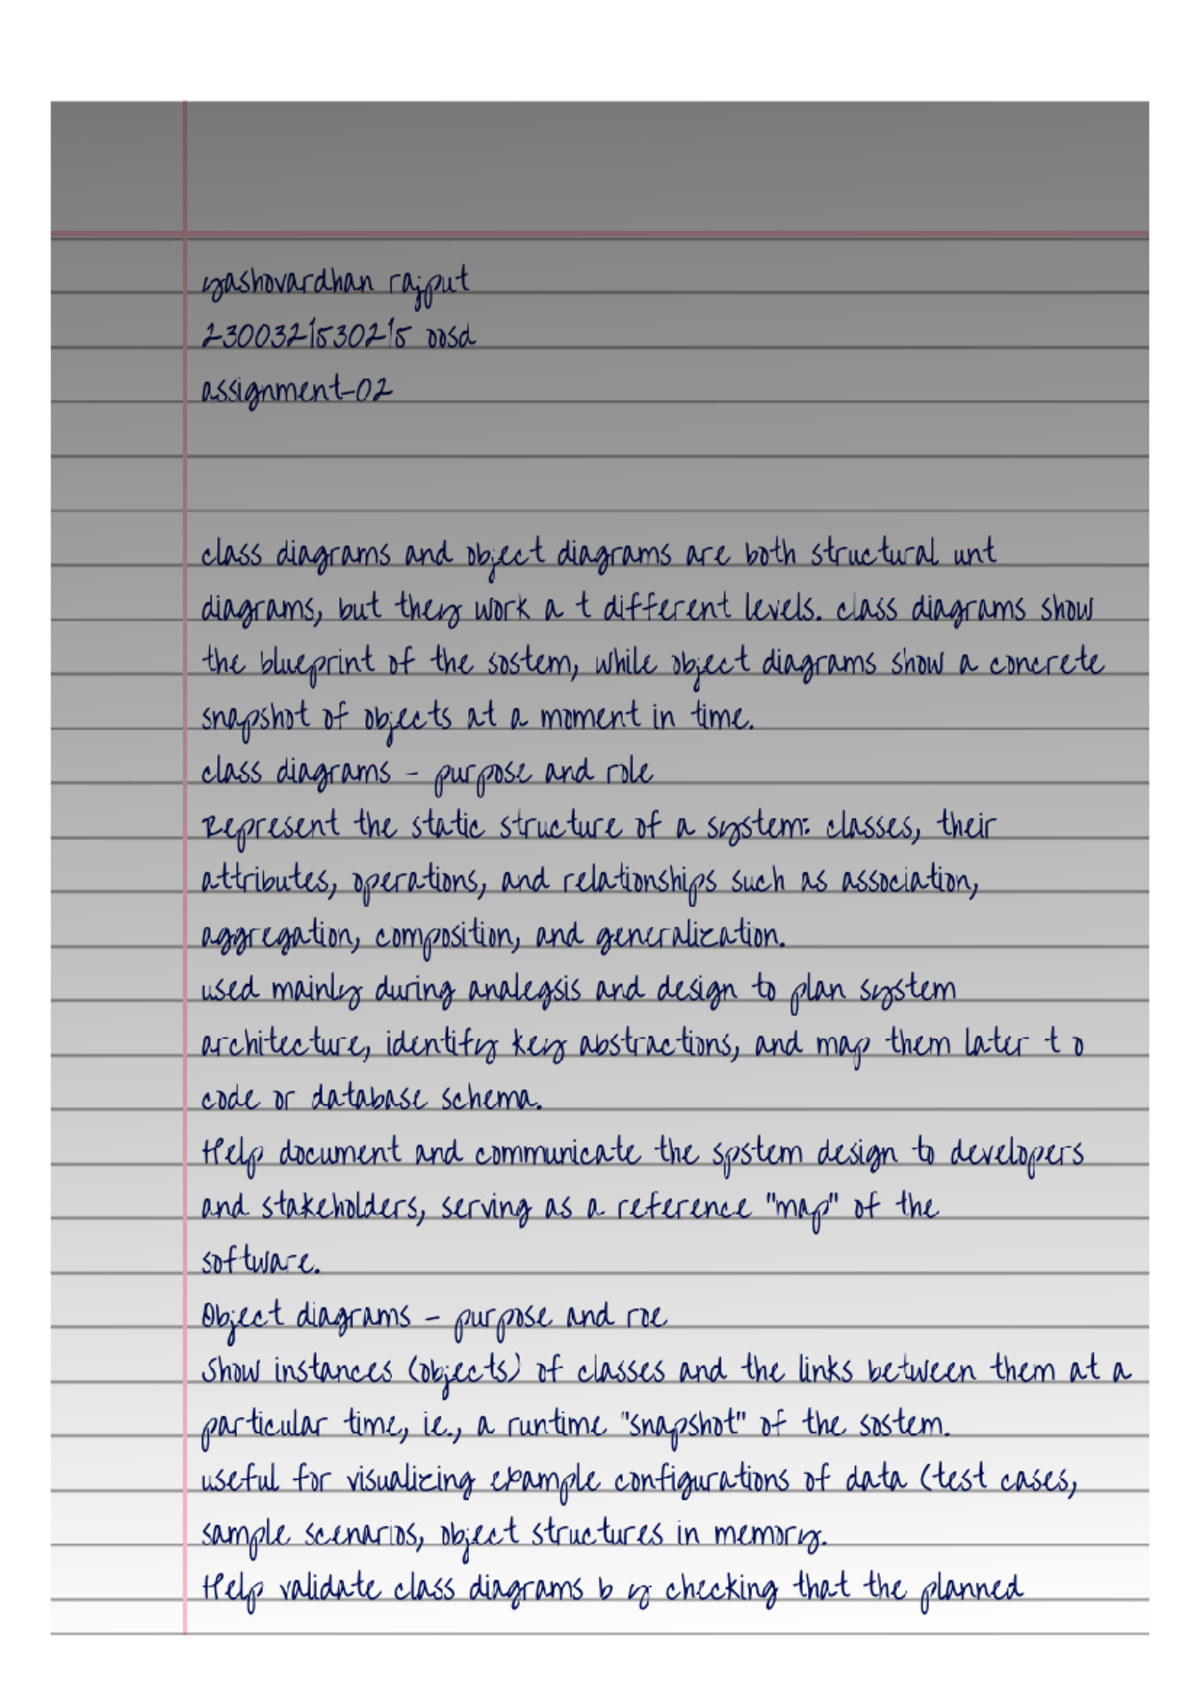 yashovardhan rajput
2300321530215 oosd
assignment-02
class diagrams and object diagrams are both structural unt
diagrams, but they work a t different levels. class diagrams show
the blueprint of the sostem, while object diagrams show a concrete
snapshot of objects at a moment in time.
class diagrams - purpose and role
Represent the static structure of a system: classes, their
attributes, operations, and relationships such as association,
aggregation, composition, and generalization.
used mainly during analegsis and design to plan system
architecture, identify key abstractions, and map them later t o
code or database schema.
Help document and communicate the spstem design to developers
and stakeholders, serving as a reference "map" of the
software.
Object diagrams - purpose and roe
Show instances (objects) of classes and the links between them at a
particular time, ie., a runtime "snapshot" of the sostem.
useful for visualizing example configurations of data (test cases,
sample scenarios, object structures in memory.
Help validate class diagrams b y checking that the planned